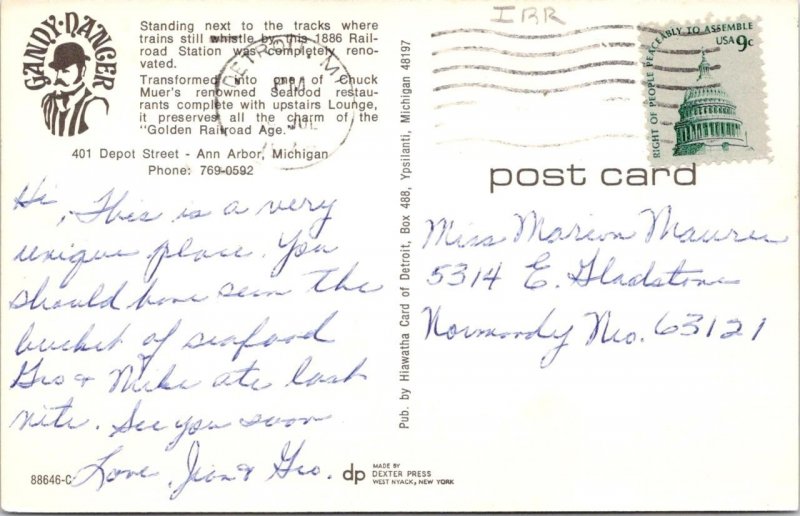 GANDY·DANCER
Standing next to the tracks where
trains still whistle by this 1886 Rail-
road Station was completely reno-
vated.
Transformed into one of Chuck
Muer's renowned Seafood restau-
rants complete with upstairs Lounge,
it preserves all the charm of the
"Golden Railroad Age."
401 Depot Street - Ann Arbor, Michigan
Phone: 769-0592
Hi, This is a very
unique place. You
should have seen the
bucket of seafood
Geo & Mike ate last
nite. See you soon
Love, Jean & Geo.
88646-C
Pub. by Hiawatha Card of Detroit, Box 488, Ypsilanti, Michigan 48197
dp MADE BY
DEXTER PRESS
WEST NYACK, NEW YORK
IRR
DETROIT, MI
PM
JUL
RIGHT OF PEOPLE PEACEABLY TO ASSEMBLE
USA 9c
post card
Miss Marion Maurer
5314 E. Gladstone
Normandy Mo. 63121